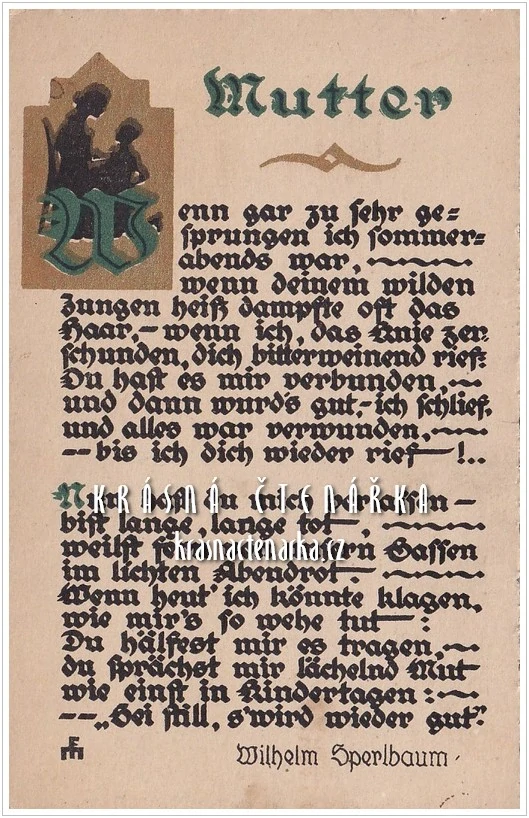 Mutter
Wenn gar zu sehr ge=
sprungen ich sommer=
abends war,
wenn deinem wilden
Jungen heiß dampfte oft das
Haar,- wenn ich, das Knie zer-
schunden, dich bitterweinend rief:
Du hast es mir verbunden,
und dann wurd's gut,- ich schlief,
und alles war verwunden,
-- bis ich dich wieder rief—!..
du mich verlassen –
KRÁSNÁ ČTENÁŘKA
bist lange, lange tot,
weilst Gassen
krasnactenarka.cz
im lichten Abendrot.
Wenn heut' ich könnte klagen,
wie mir's so wehe tut:
Du hälfest mir es tragen,
du sprächst mir lächelnd Mut
wie einst in Kindertagen:
-- „Sei still, s'wird wieder gut."
Wilhelm Sperlbaum.